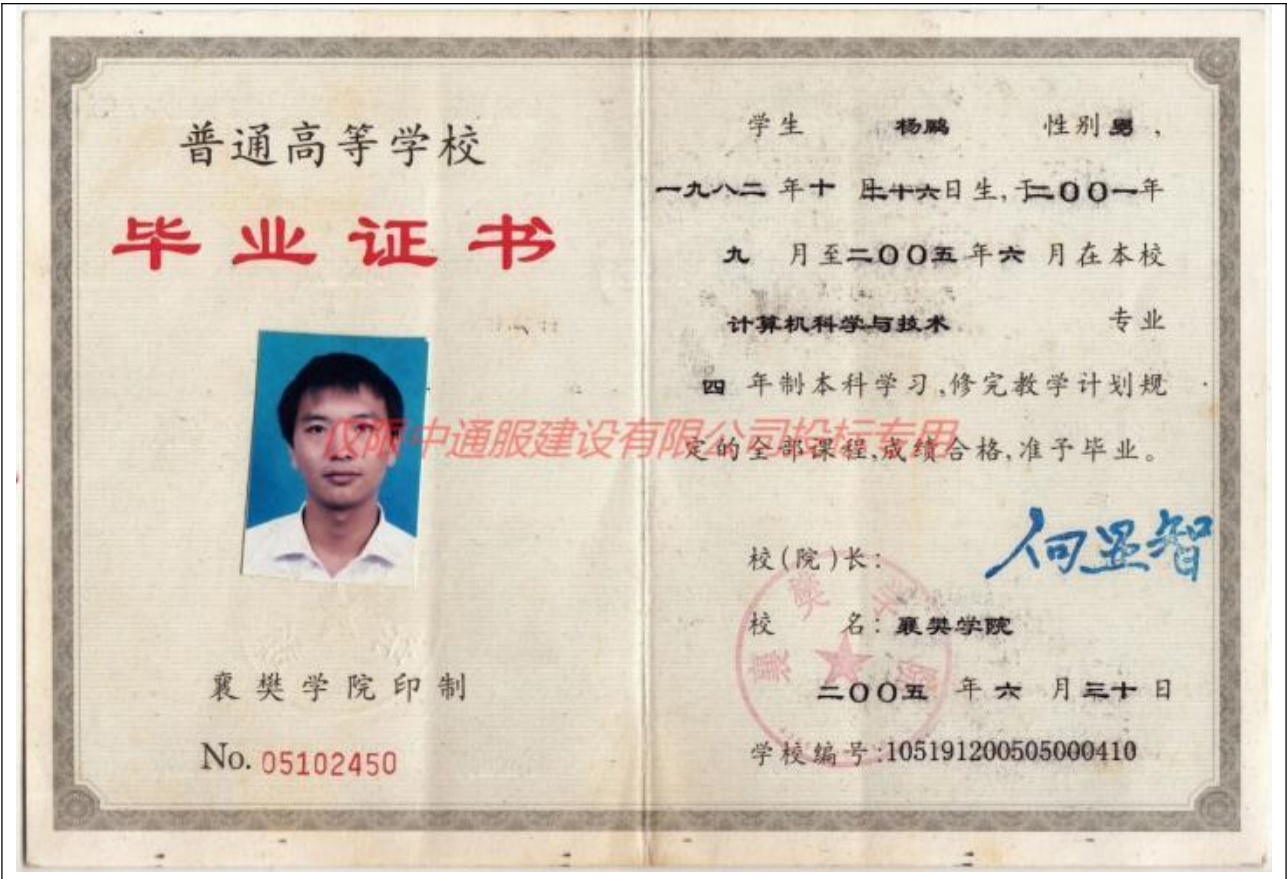 普通高等学校
毕业证书
仅限中通服建设有限公司投标专用
襄樊学院印制
No. 05102450
学生 杨鹏 性别 男，
一九八二 年十 月二十六日生,于二〇〇一年
九 月至二〇〇五年六 月在本校
计算机科学与技术 专业
四 年制本科学习,修完教学计划规
定的全部课程,成绩合格,准予毕业。
校(院)长: 何显智
校 名: 襄樊学院
襄樊学院
二〇〇五 年 六 月 三十 日
学校编号:105191200505000410